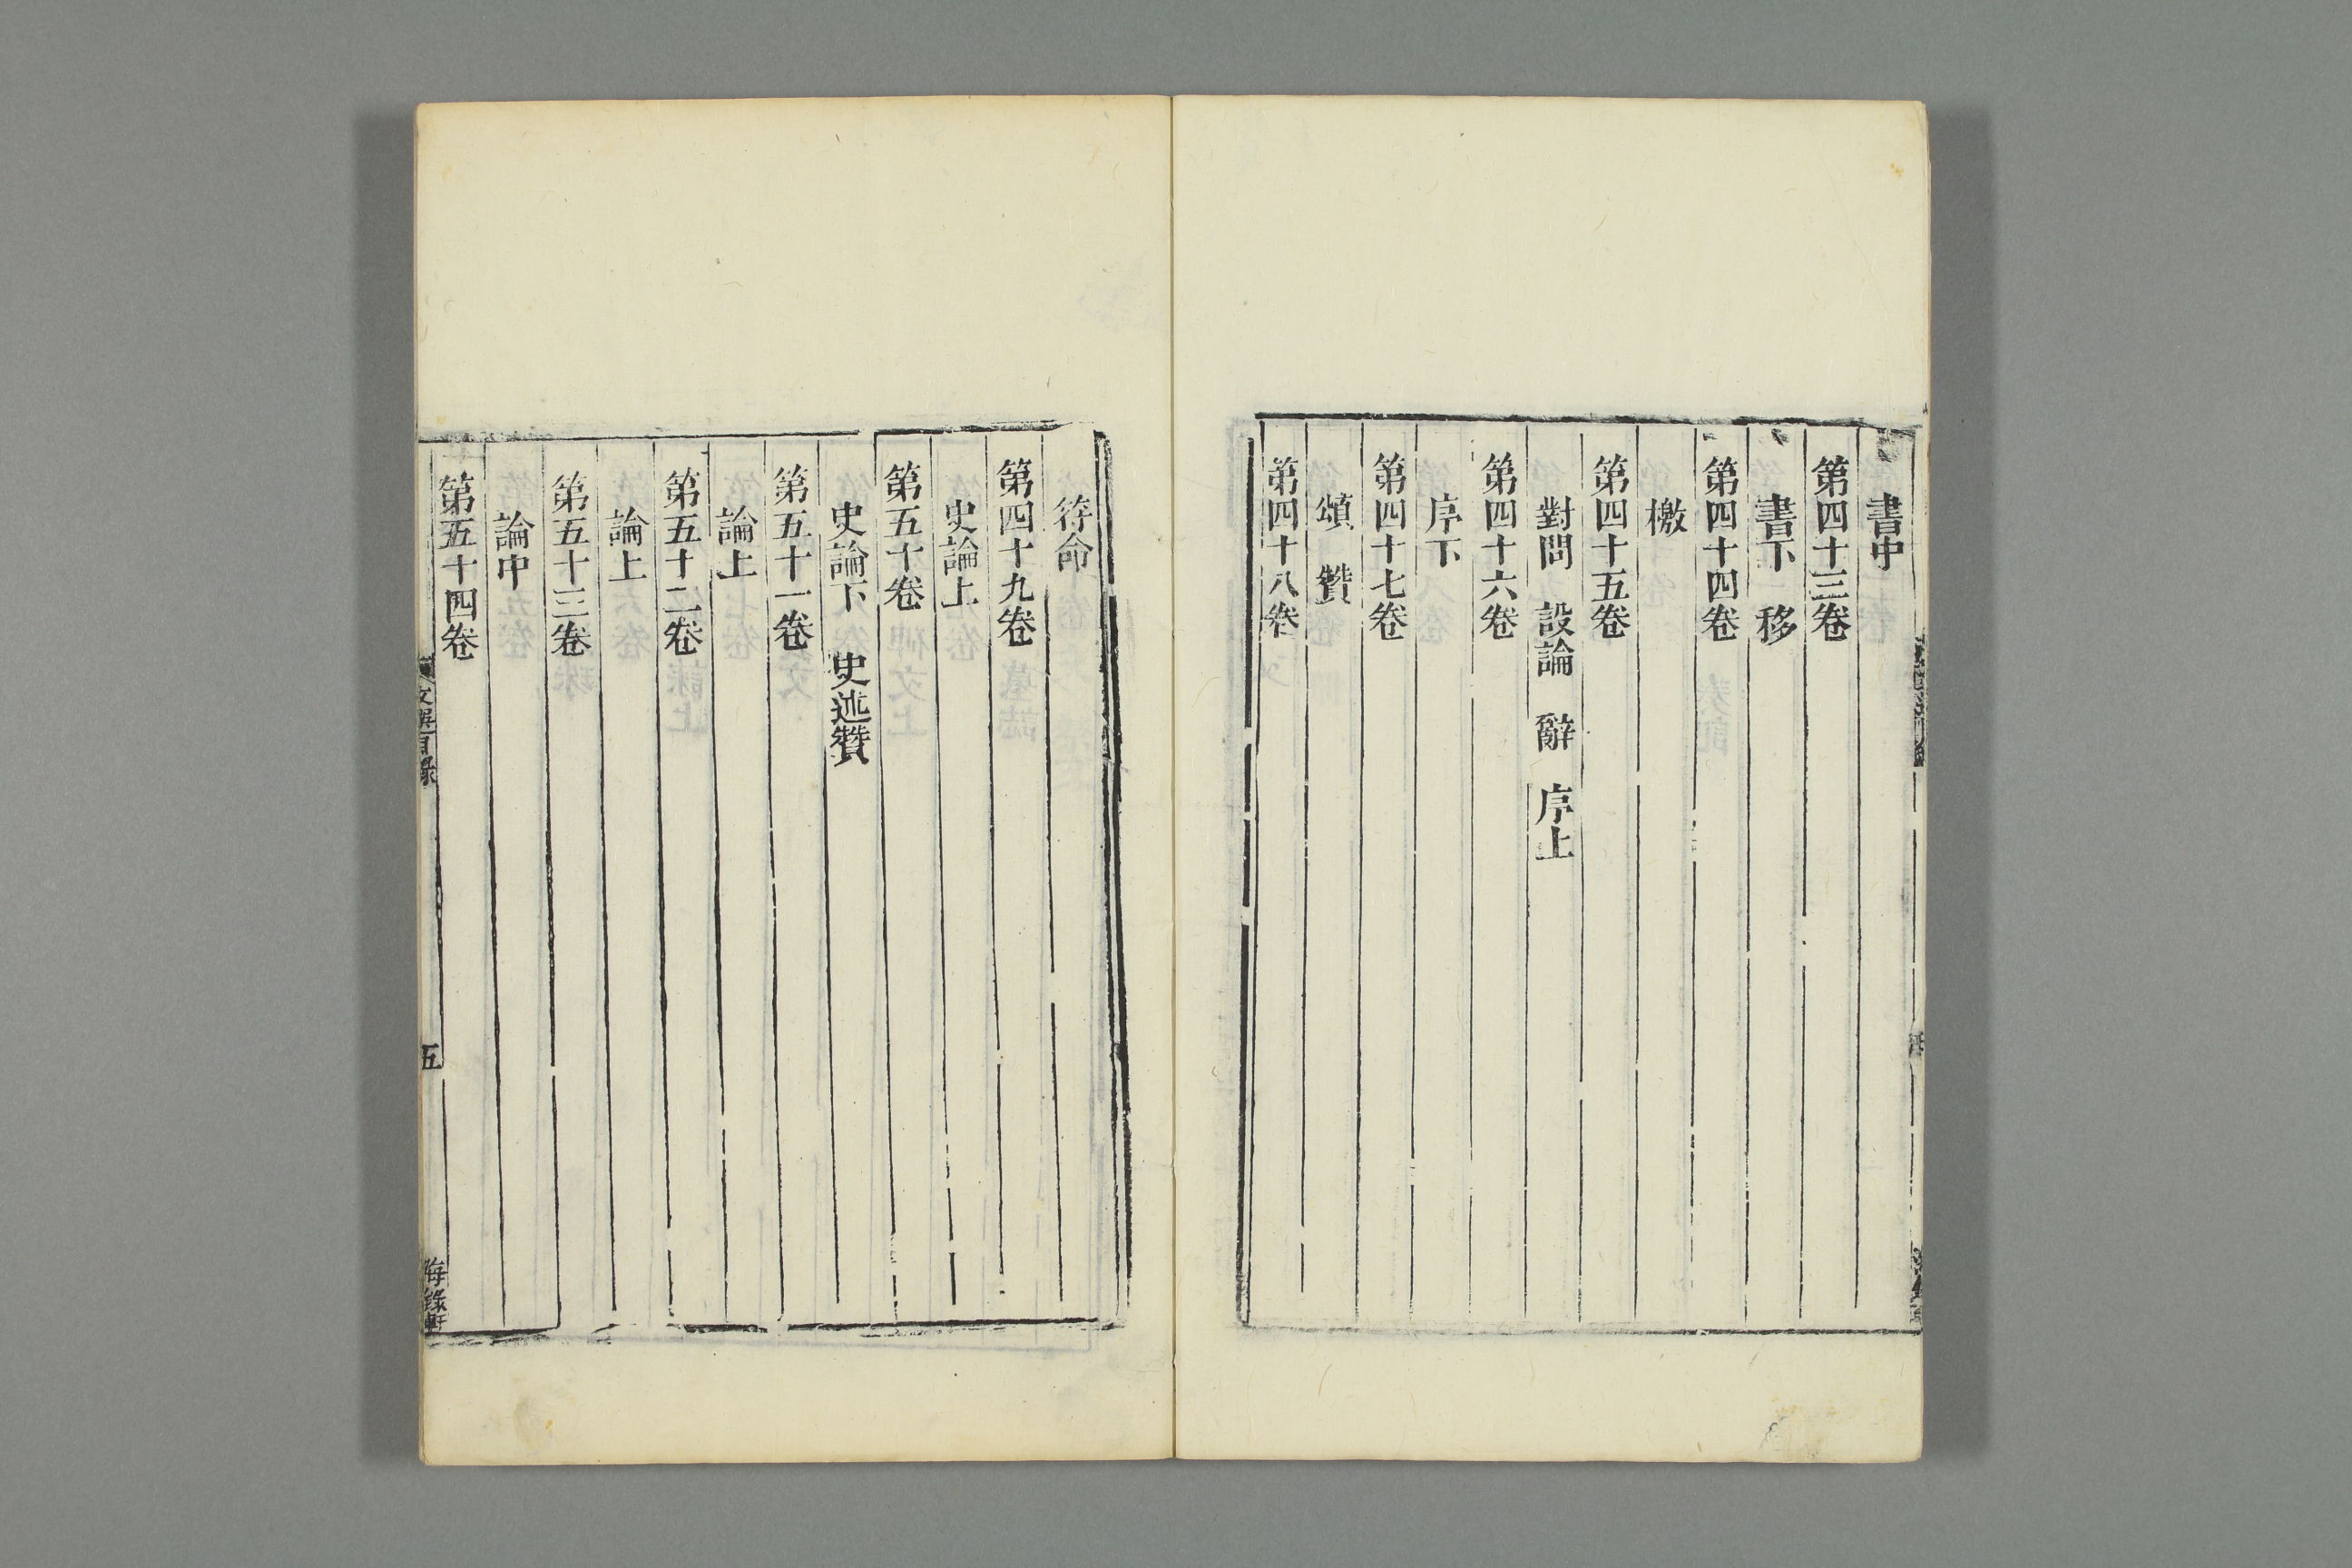 書中
第四十三卷
書下 移
第四十四卷
檄
第四十五卷
對問 設論 辭 序上
第四十六卷
序下
第四十七卷
頌 贊
第四十八卷
符命
第四十九卷
史論上
第五十卷
史論下 史述贊
第五十一卷
論上
第五十二卷
論上
第五十三卷
論中
第五十四卷
文選目錄
五
海錄軒